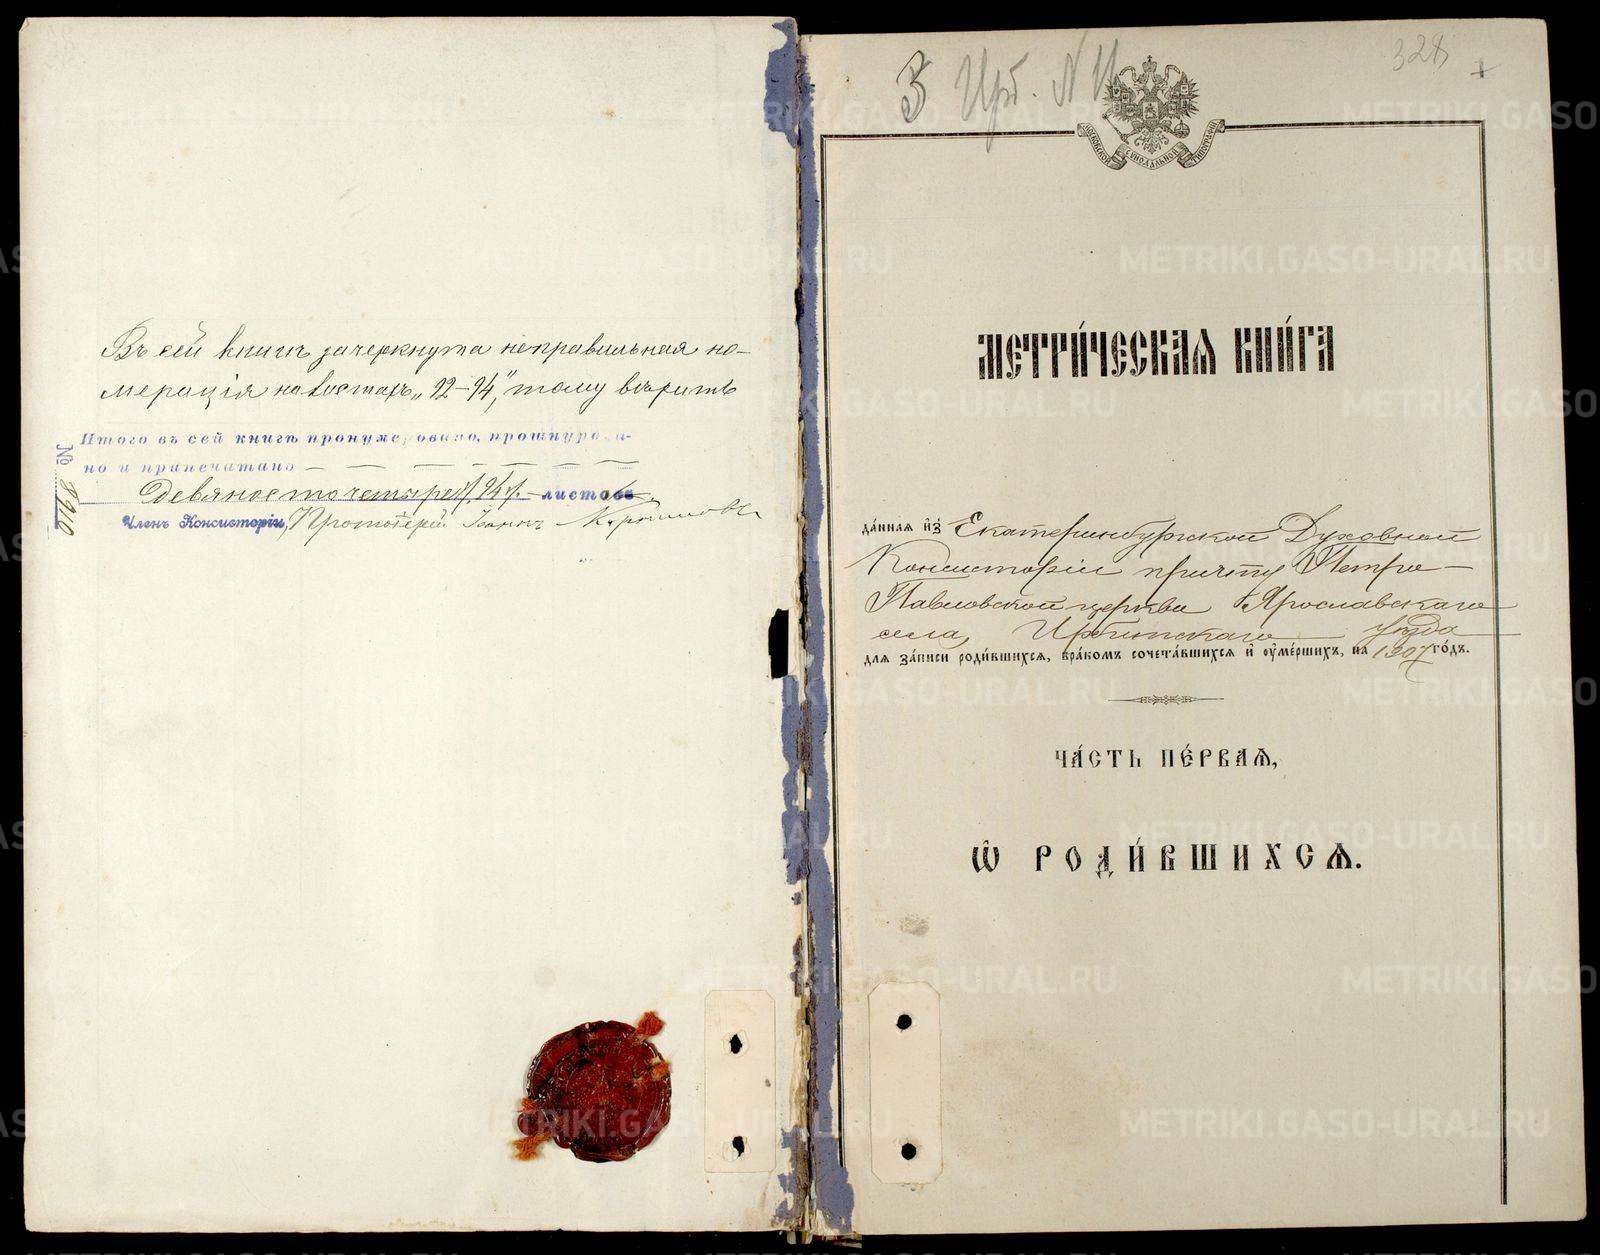 Въ сей книгѣ зачеркнута неправильная но-
мерація на листахъ „92–94", тому вѣрить
Итого въ сей книгѣ пронумеровано, прошнурова-
но и припечатано
Девяносто четыре /94/. листовъ
Членъ Консисторіи, Протоіерей Іоаннъ
№ 8910
328
Ирб. № 11
МОСКОВСКОЙ СѴНОДАЛЬНОЙ ТИПОГРАФІИ
МЕТРИ́ЧЕСКАЯ КНИ́ГА
да́нная и҆з̾ Екатеринбургской Духовной
Консисторіи причту Петро-
Павловской церкви Ярославскаго
села, Ирбитскаго уѣзда
для за́писи роди́вшихся, бра́комъ сочета́вшихся и҆ ᲂу҆ме́ршихъ, на 1907 го́дъ.
ЧА́СТЬ ПЕ́РВАЯ,
Ѽ РОДИ́ВШИХСЯ.
METRIKI.GASO-URAL.RU